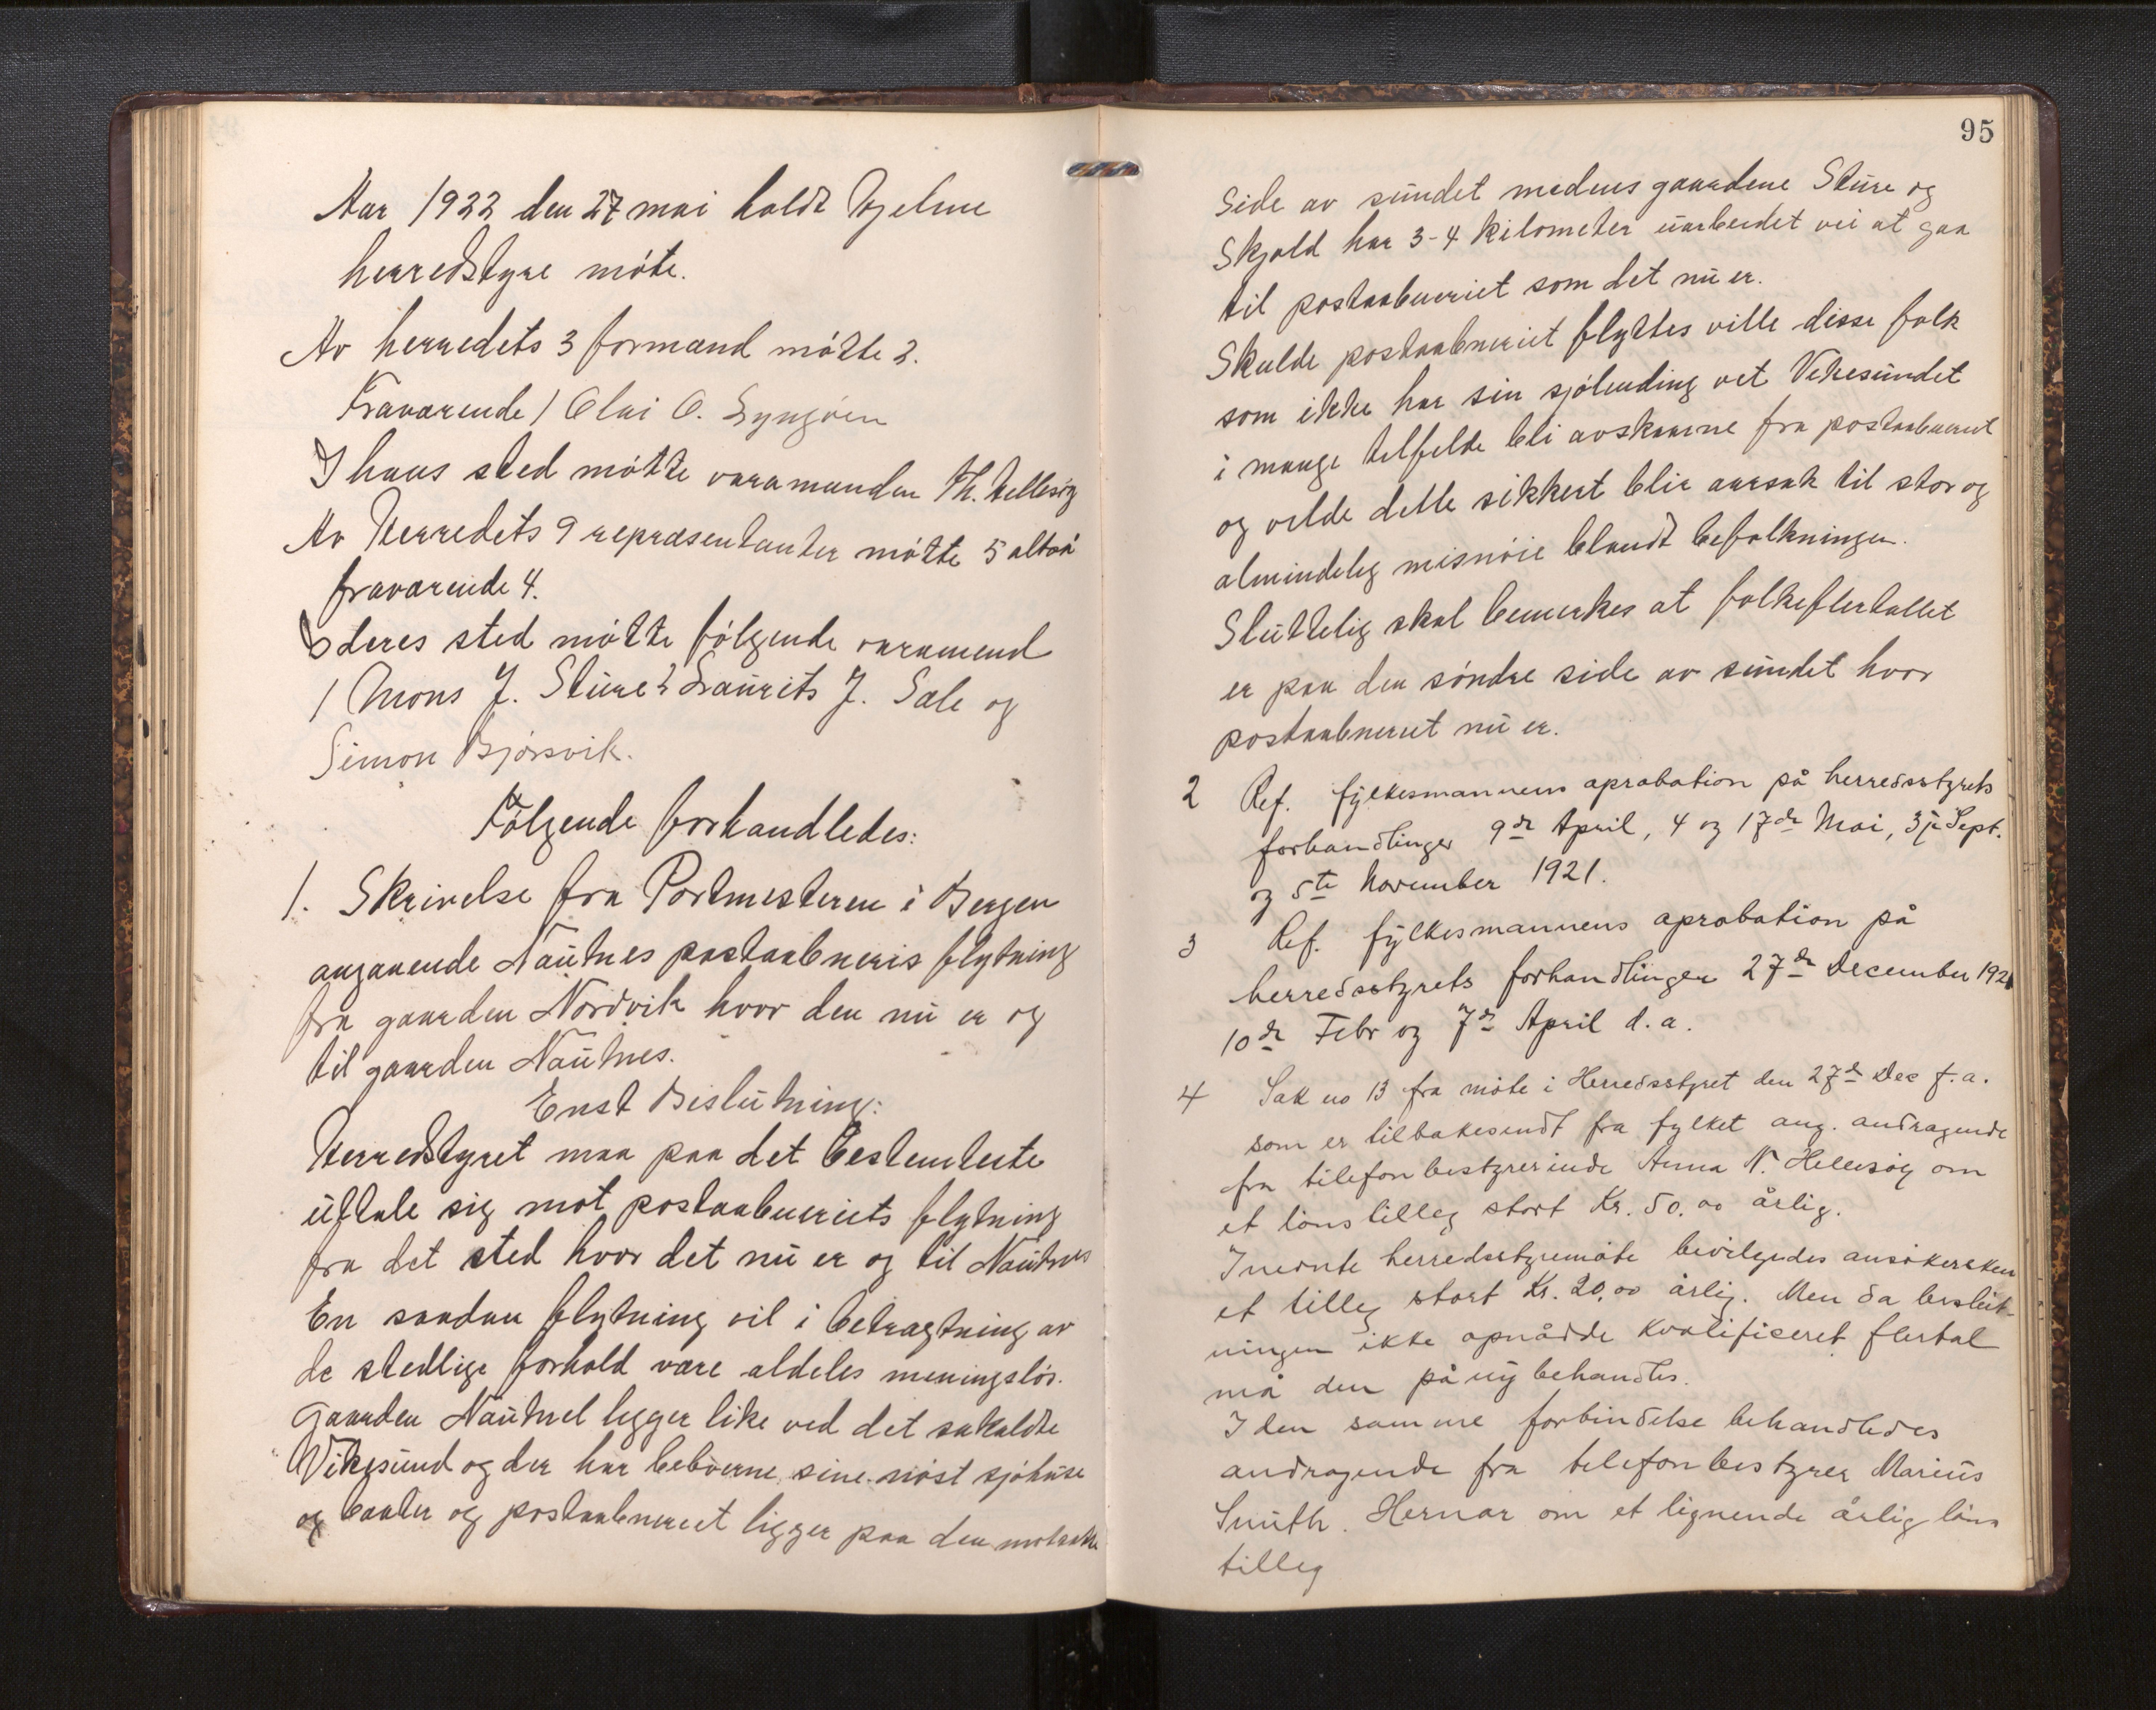 Aar 1922 den 27 mai holdt Hjelme
herredstyre møte.
Av herredets 3 formænd møtte 2.
Fraværende 1 Olai O. Lyngøen
I hans sted møtte varamanden Th. Hellesøy
Av Herredets 9 repræsentanter møtte 5 altså
fraværende 4.
I deres sted møtte følgende varamend
1 Mons J. Sture 2 Laurits J. Sæle og
Simon Bjørsvik.
Følgende forhandledes:
1. Skrivelse fra Postmesteren i Bergen
angaaende Nautnes postaabneris flytning
fra gaarden Nordvik hvor den nu er og
til gaarden Nautnes.
Enst Beslutning:
Herredstyret maa paa det bestemteste
uttale sig mot postaabneriets flytning
fra det sted hvor det nu er og til Nautnes
En saadan flytning vil i betragtning av
de stedlige forhold være aldeles meningsløs.
Gaarden Nautnes ligger like ved det sakaldte
Vikesund og der har beboerne sine nøst sjøhuse
og baater og postaabneriet ligger paa den motsatte
95
Side av sundet medens gaardene Sture og
Skjold har 3-4 kilometer uarbeidet vei at gaa
til postaabneriet som det nu er.
Skulde postaabneriet flyttes ville disse folk
som ikke har sin sjølending vet Vikesundet
i mange tilfelde bli avskaarne fra postaabneriet
og vilde dette sikkert blie aarsak til stor og
almindelig misnøie blandt befolkningen.
Sluttelig skal bemerkes at folkeflertallet
er paa den søndre side av sundet hvor
postaabneriet nu er.
2 Ref. fylkesmannens aprobation på herredsstyrets
forhandlinger 9de April, 4 og 17de Mai, 3je Sept.
og 5te November 1921.
3 Ref. fylkesmannens aprobation på
herredsstyrets forhandlinger 27de December 1921
10de Febr og 7de April d.a.
4 Sak no 13 fra møte i Herredsstyret den 27de Dec f.a.
som er tilbakesendt fra fylket ang. andragende
fra telefonbestyrerinde Anna N. Hellesøy om
et lønstilleg stort Kr. 50.00 årlig.
I nevnte herredsstyremøte bevilgedes ansøkersken
et tilleg stort Kr. 20,00 årlig. Men da beslut-
ningen ikke opnådde kvalificeret flertal
må den på ny behandles.
I den samme forbindelse behandledes
andragende fra telefonbestyrer Marius
Smith. Hernar om et lignende årlig løns
tilleg